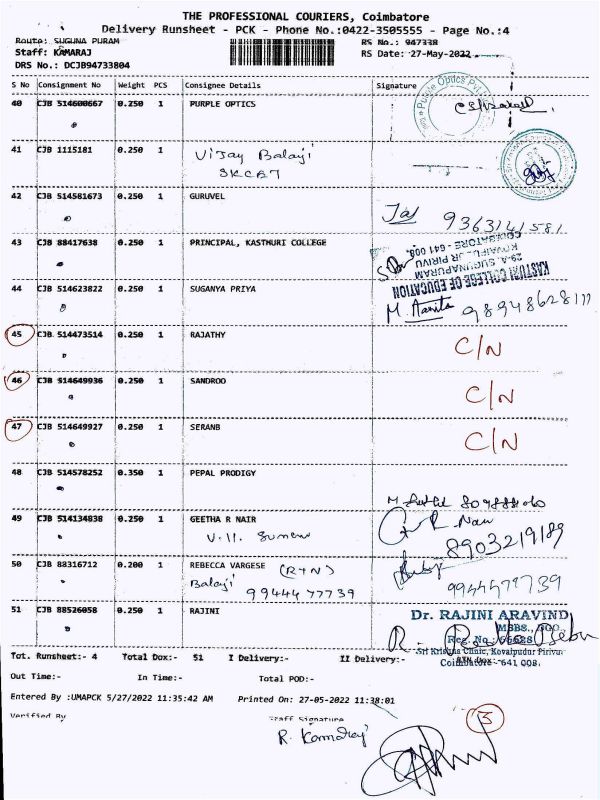 THE PROFESSIONAL COURIERS, Coimbatore
Delivery Runsheet - PCK - Phone No.:0422-3505555 - Page No.:4
Route: SUGUNA PURAM RS No.: 947338
Staff: KAMARAJ RS Date: 27-May-2022
DRS No.: DCJB94733804
S No Consignment No Weight PCS Consignee Details Signature
40 CJB 514600667 0.250 1 PURPLE OPTICS
41 CJB 1115181 0.250 1 Vijay Balaji
SKCET
42 CJB 514581673 0.250 1 GURUVEL
9363141581
43 CJB 88417638 0.250 1 PRINCIPAL, KASTHURI COLLEGE
KASTURI COLLEGE OF EDUCATION
29-A, SUGUNAPURAM
KOVAIPUDUR PIRIVU
COIMBATORE - 641 008.
44 CJB 514623822 0.250 1 SUGANYA PRIYA
M.
45 CJB 514473514 0.250 1 RAJATHY C/N
46 CJB 514649936 0.250 1 SANDROO C/N
47 CJB 514649927 0.250 1 SERANB C/N
48 CJB 514578252 0.350 1 PEPAL PRODIGY
49 CJB 514134838 0.250 1 GEETHA R NAIR
8903219189
50 CJB 88316712 0.200 1 REBECCA VARGESE
Balaji
9944477739
9944477739
51 CJB 88526058 0.250 1 RAJINI
Dr. RAJINI ARAVIND
MBBS.,
Reg. No.
Sri Krishna Clinic, Kovaipudur Pirivu
Coimbatore - 641 008.
Tot. Runsheet:- 4 Total Dox:- 51 I Delivery:- II Delivery:-
Out Time:- In Time:- Total POD:-
Entered By :UMAPCK 5/27/2022 11:35:42 AM Printed On: 27-05-2022 11:38:01
Verified By Staff Signature
R. Kamaraj
3